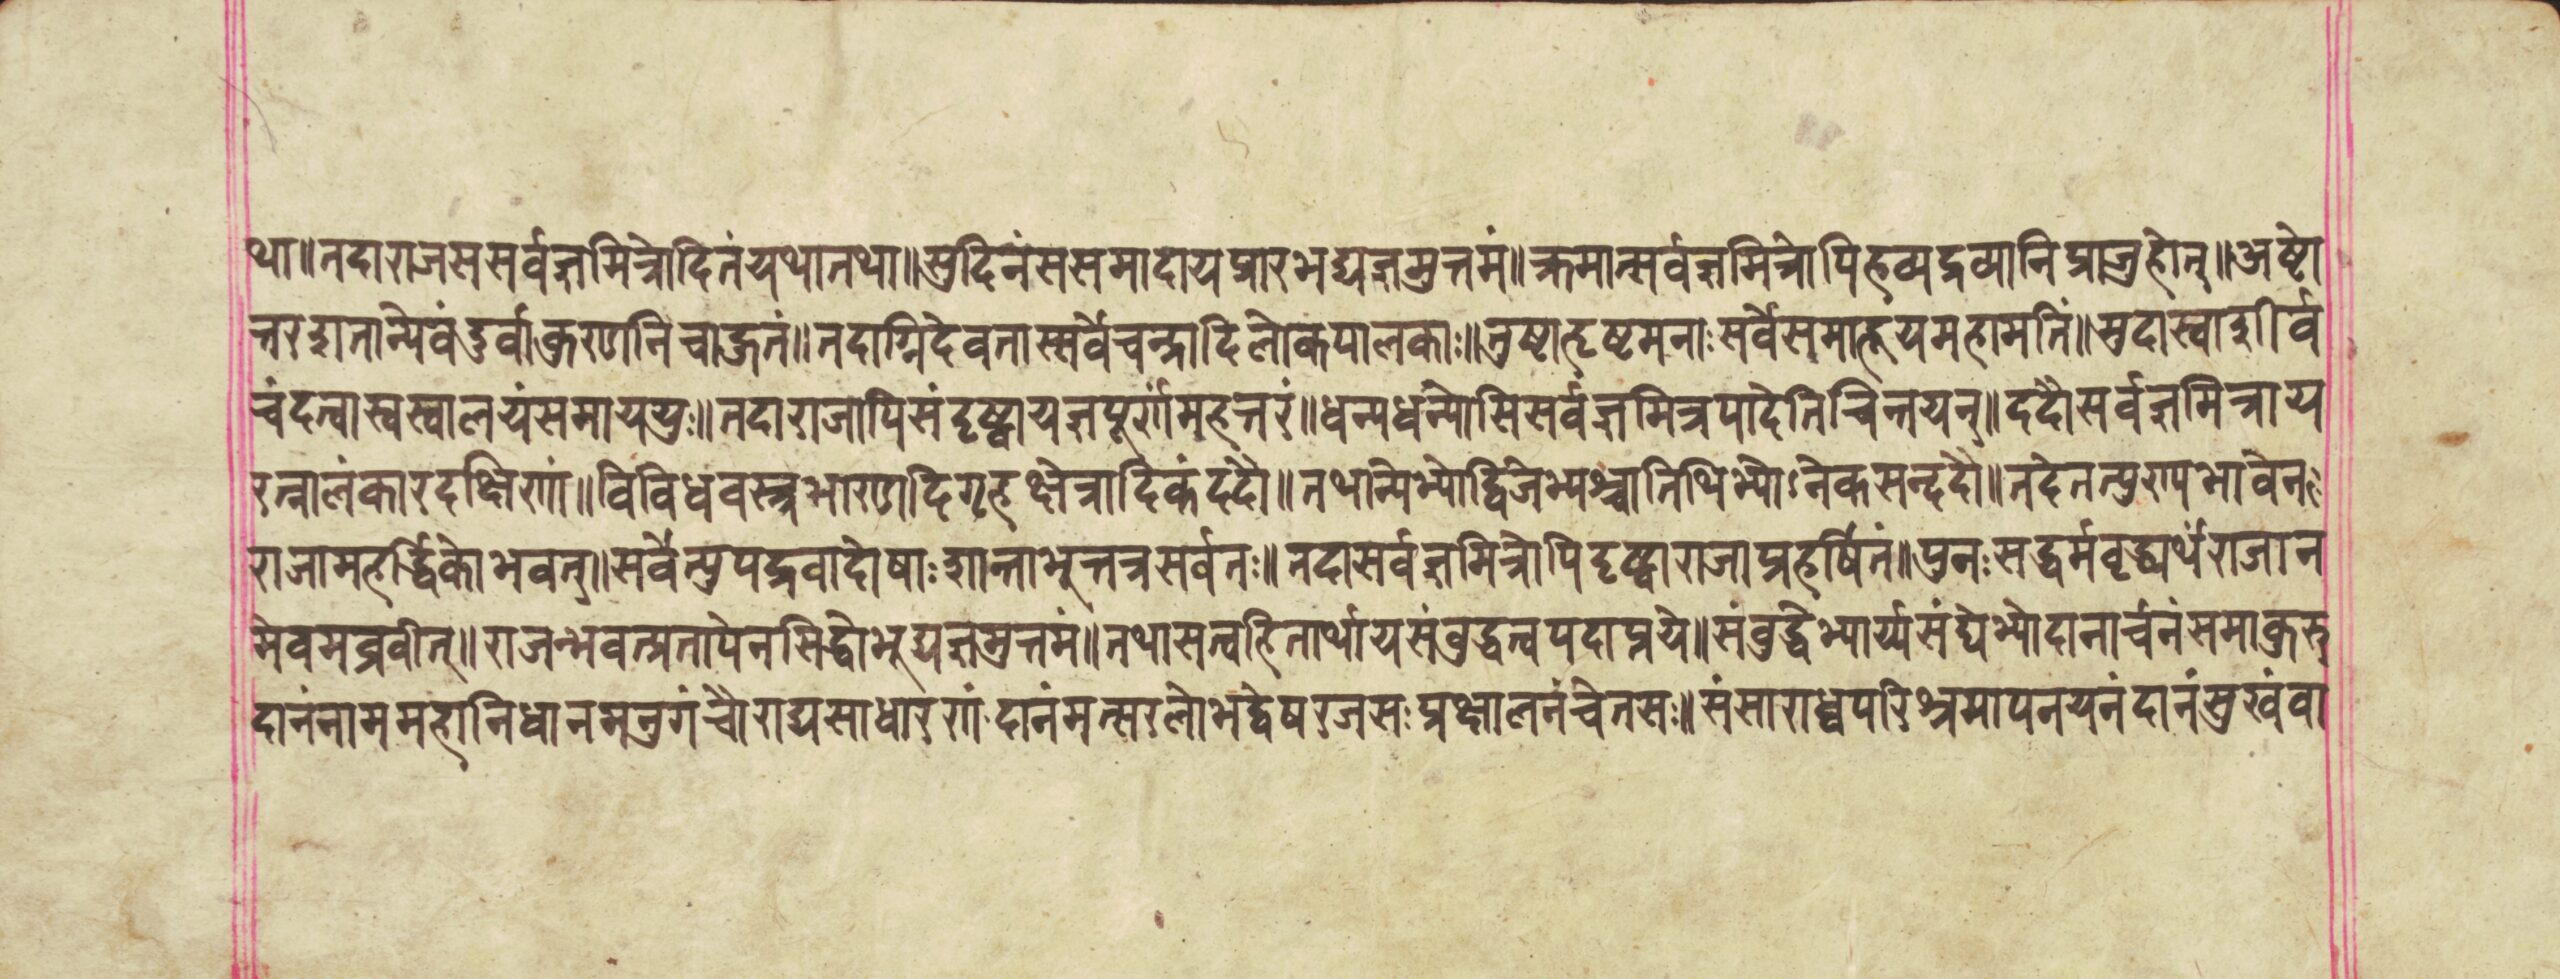 था॥तदाराजससर्वज्ञमित्रोदितंयथातथा॥सुदिनंससमादायप्रारभद्यज्ञमुत्तमं॥क्रमात्सर्वज्ञमित्रोपिहव्यद्रव्यानिप्राजुहोत्॥अष्टो
त्तरशतान्येवंदुर्वाकुरणनिचाहुतं॥तदाग्निदेवतास्सर्वेचन्द्रादिलोकपालकाः॥तुष्टाहृष्टमनाःसर्वेसमाहूयमहामतिं॥मुदास्वाशीर्व
चंदत्वास्वस्वालयंसमाययुः॥तदाराजापिसंदृष्ट्वायज्ञपूर्णंमहत्तरं॥धन्यधन्योसिसर्वज्ञमित्रपादेतिचिन्तयन्॥ददौसर्वज्ञमित्राय
रत्नालंकारदक्षिणां॥विविधवस्त्रभारणदिगृहक्षेत्रादिकंददौ॥तथान्येभ्योद्विजेभ्यश्चातिथिभ्योऽनेकसन्ददौ॥तदेतत्पुण्यप्रभावेनः
राजामहर्द्धिकोभवत्॥सर्वेत्पुपद्रवादोषाःशान्ताभूत्तत्रसर्वतः॥तदासर्वज्ञमित्रोपिदृष्ट्वाराजाप्रहर्षितं॥पुनःसद्धर्मवृद्ध्यर्थंराजान
मेवमब्रवीत्॥राजन्भवत्प्रतापेनसिद्धोभूद्यज्ञमुत्तमं॥तथासत्वहितार्थायसंबुद्धत्वपदाप्तये॥संबुद्धेभ्यार्य्यसंघेभ्योदानार्चनंसमाकुरु
दानंनाममहानिधानमनुगंचौराद्यसाधारणंःदानंमत्सरलोभद्वेषरजसःप्रक्षालनंचेतसः॥संसाराध्वपरिश्रमापनयनंदानंसुखंवा